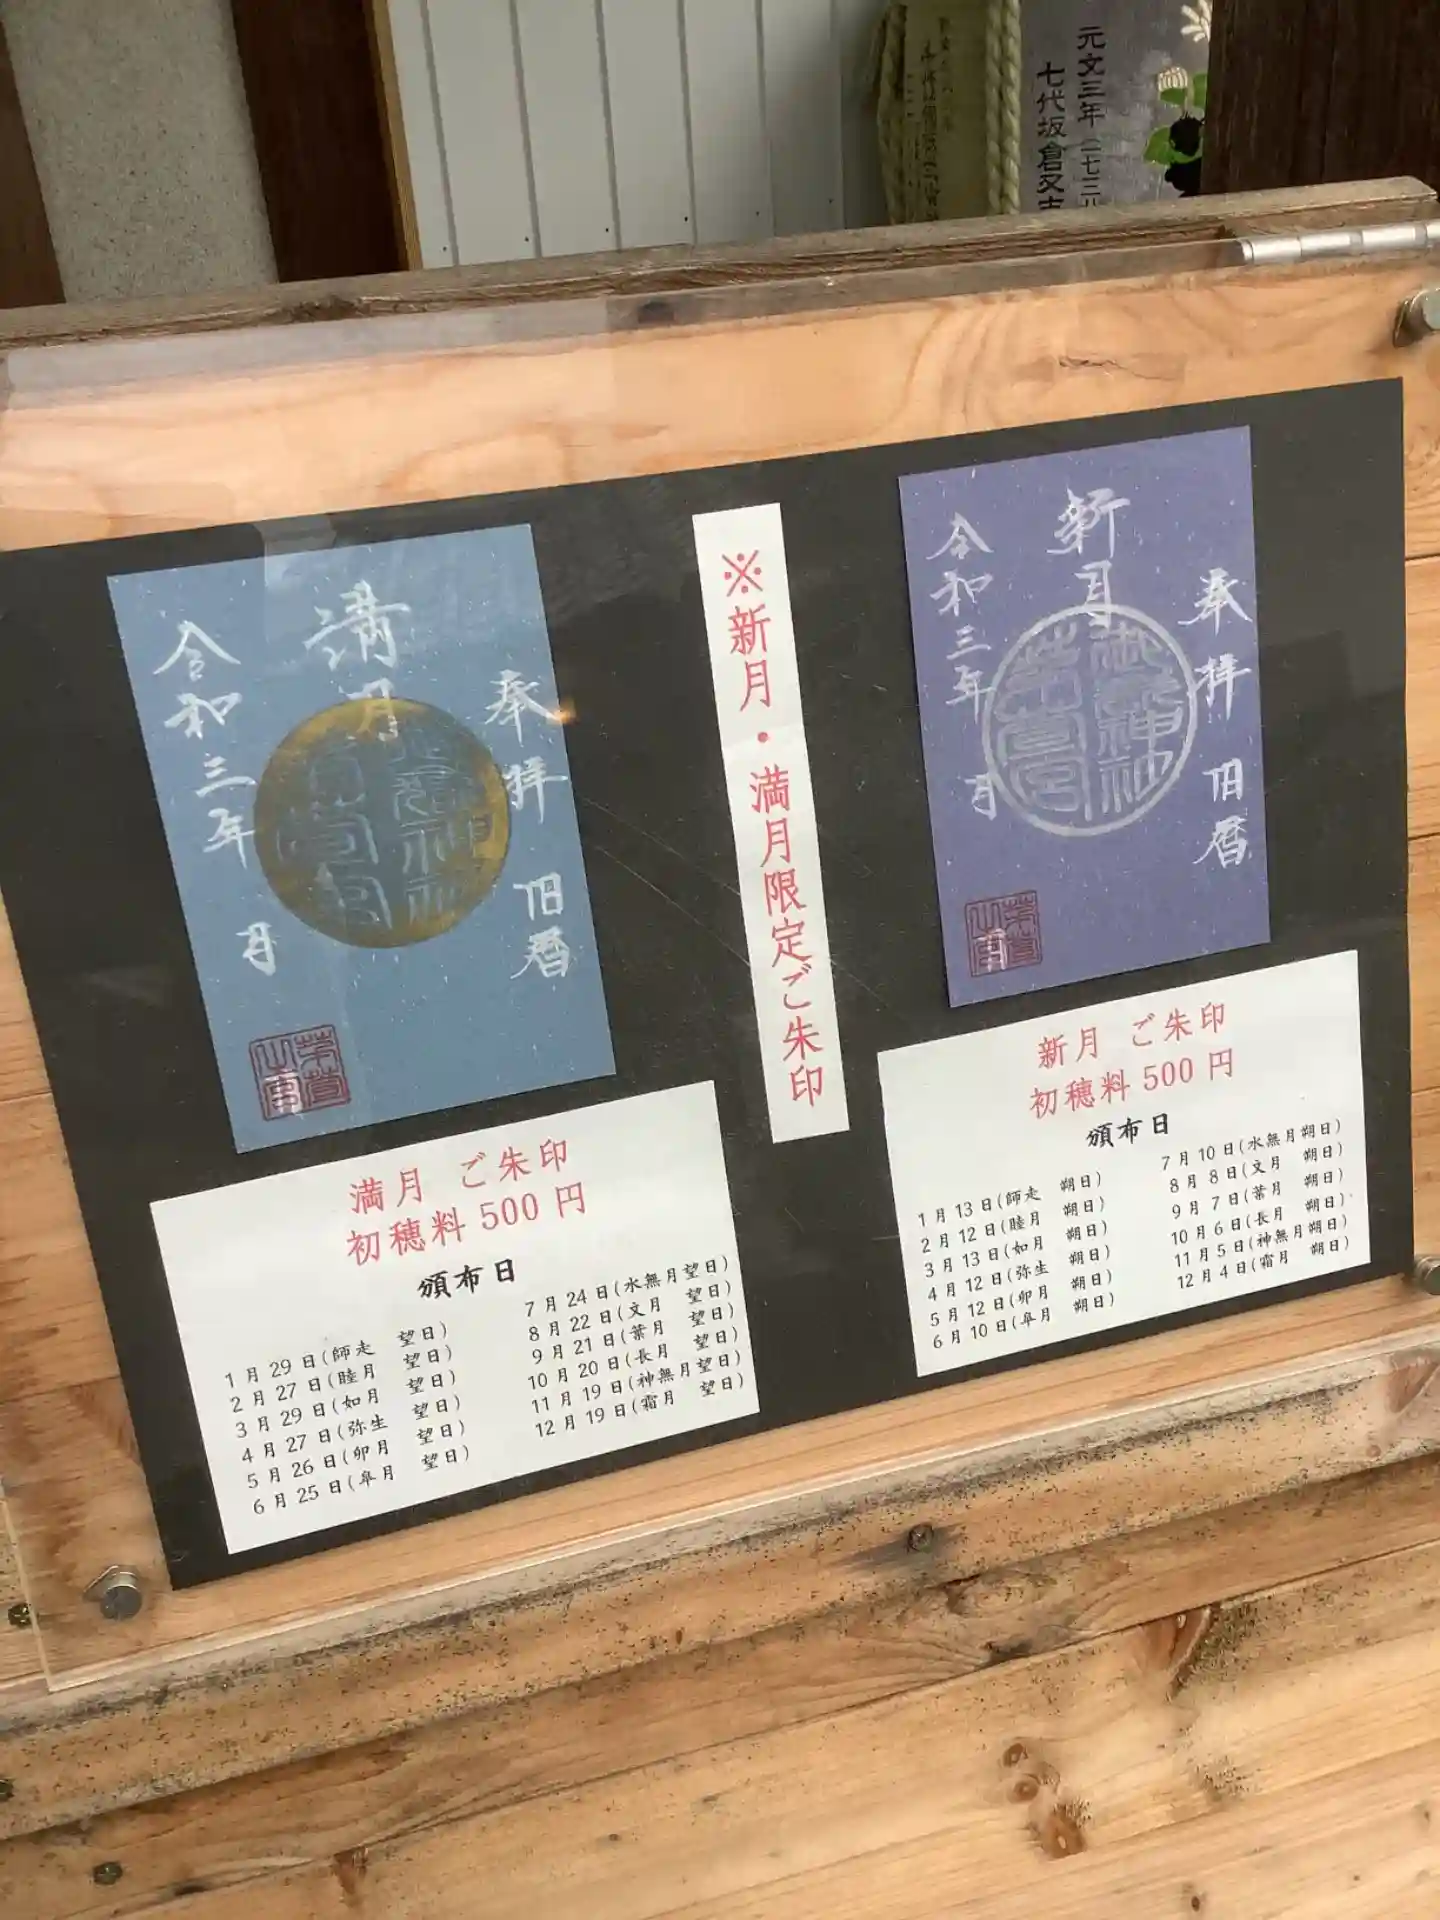 元文三年
七代坂倉又吉
※新月・満月限定ご朱印
奉拝 旧暦
満月
令和三年 月
満月 ご朱印
初穂料500円
頒布日
1月29日(師走 望日)
2月27日(睦月 望日)
3月29日(如月 望日)
4月27日(弥生 望日)
5月26日(卯月 望日)
6月25日(皐月 望日)
7月24日(水無月望日)
8月22日(文月 望日)
9月21日(葉月 望日)
10月20日(長月 望日)
11月19日(神無月望日)
12月19日(霜月 望日)
奉拝 旧暦
新月
令和三年 月
新月 ご朱印
初穂料500円
頒布日
1月13日(師走 朔日)
2月12日(睦月 朔日)
3月13日(如月 朔日)
4月12日(弥生 朔日)
5月12日(卯月 朔日)
6月10日(皐月 朔日)
7月10日(水無月朔日)
8月8日(文月 朔日)
9月7日(葉月 朔日)
10月6日(長月 朔日)
11月5日(神無月朔日)
12月4日(霜月 朔日)